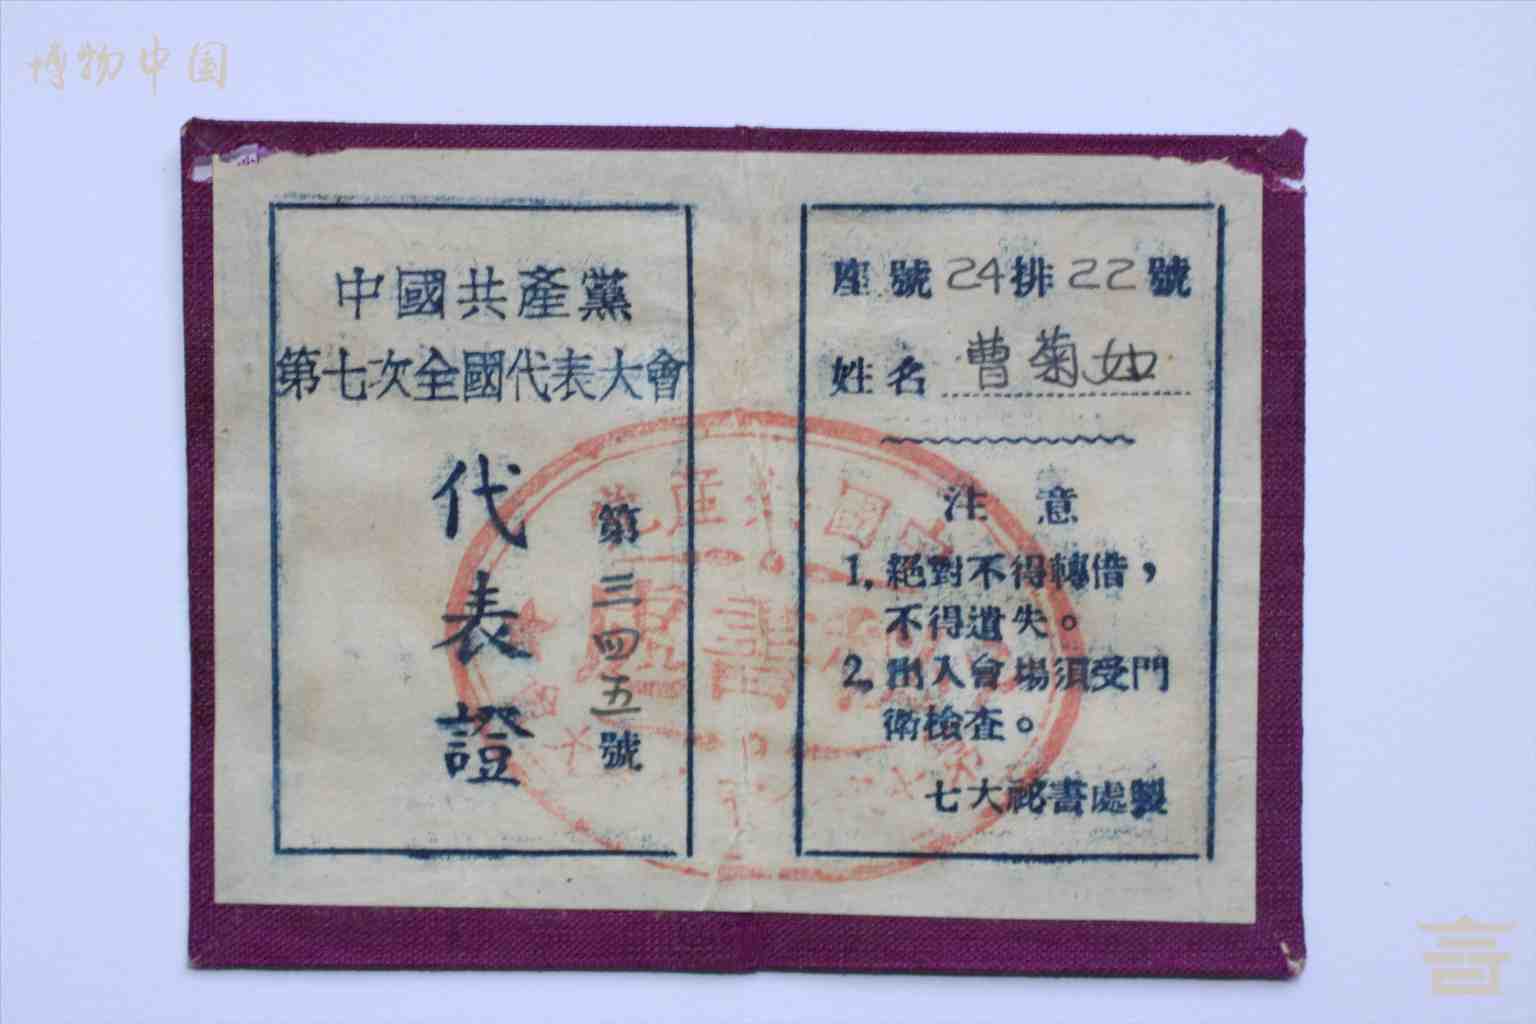 博物中国
中國共產黨
第七次全國代表大會
代表證
第三四五號
座號24排22號
姓名 曹菊如
注意
1, 絕對不得轉借，
不得遺失。
2, 出入會場須受門
衛檢查。
七大祕書處製